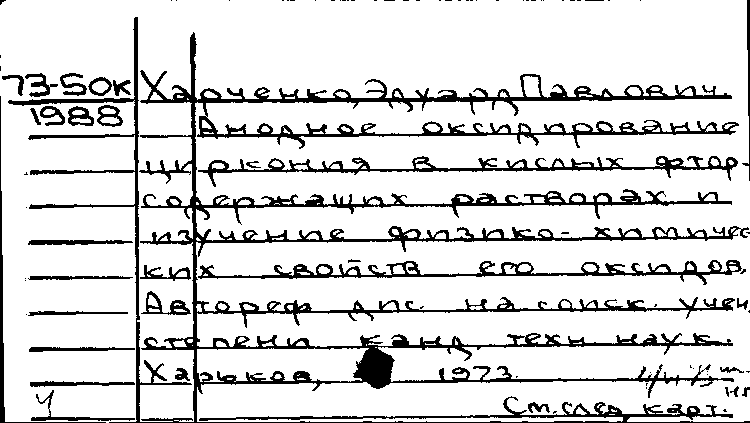 73-50к Харченко, Эдуард Павлович.
1988
Анодное оксидирование
циркония в кислых фтор-
содержащих растворах и
изучение физико-химичес
ких свойств его оксидов.
Автореф дис. на соиск. учен,
степени канд. техн наук.
Харьков, 1973
Ч См. след. карт.